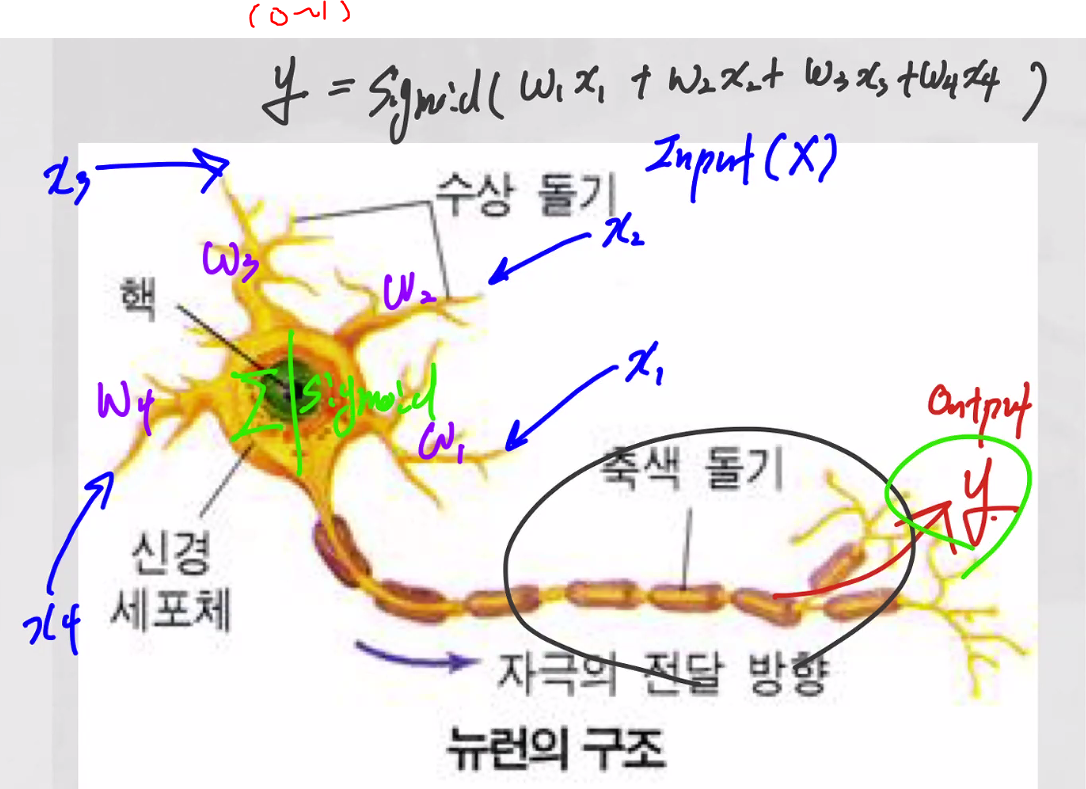 (0~1)
y = Sigmoid( w₁x₁ + w₂x₂ + w₃x₃ + w₄x₄ )
Input(X)
x₃
수상 돌기
x₂
w₃
핵
w₂
x₁
Σ | Sigmoid
w₄
Output
w₁
축색 돌기
y
신경
세포체
x₄
자극의 전달 방향
뉴런의 구조